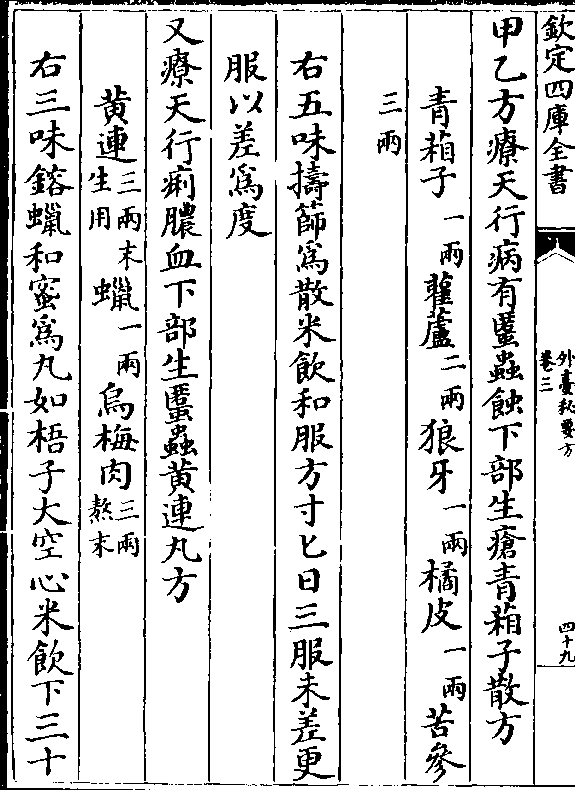 欽定四庫全書
外臺秘要方
卷三
四十九
甲乙方療天行病有䘌蟲蝕下部生瘡青葙子散方
青葙子一兩雚蘆二兩狼牙一兩橘皮一兩苦參
三兩
右五味擣篩為散米飲和服方寸匕日三服未差更
服以差為度
又療天行痢膿血下部生䘌蟲黄連丸方
黄連三兩末生用蠟一兩烏梅肉三兩熬末
右三味鎔蠟和蜜為丸如梧子大空心米飲下三十